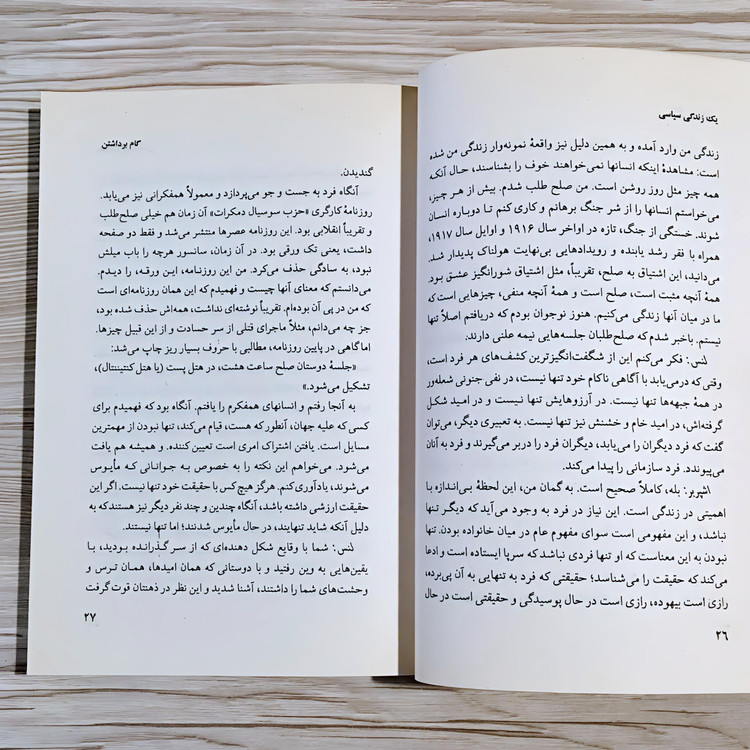 یک زندگی سیاسی
زندگی من وارد آمده و به همین دلیل نیز واقعهٔ نمونه‌وار زندگی من شده
است: مشاهدهٔ اینکه انسانها نمی‌خواهند خوف را بشناسند، حال آنکه
همه چیز مثل روز روشن است. من صلح طلب شدم. بیش از هر چیز،
می‌خواستم انسانها را از شر جنگ برهانم و کاری کنم تا دوباره انسان
شوند. خستگی از جنگ، تازه در اواخر سال ۱۹۱۶ و اوایل سال ۱۹۱۷،
همراه با فقر رشد یابنده و رویدادهایی بی‌نهایت هولناک پدیدار شد.
می‌دانید، این اشتیاق به صلح، تقریباً، مثل اشتیاق شورانگیز عشق بود.
همهٔ آنچه مثبت است، صلح است و همهٔ آنچه منفی، چیزهایی است که
ما در میان آنها زندگی می‌کنیم. هنوز نوجوان بودم که دریافتم اصلاً تنها
نیستم. باخبر شدم که صلح‌طلبان جلسه‌هایی نیمه علنی دارند.
لنس: فکر می‌کنم این از شگفت‌انگیزترین کشف‌های هر فرد است،
وقتی که درمی‌یابد با آگاهی ناکام خود تنها نیست، در نفی جنونی شعله‌ور
در همهٔ جبهه‌ها تنها نیست. در آرزوهایش تنها نیست و در امید شکل
گرفته‌اش، در امید خام و خشنش نیز تنها نیست. به تعبیری دیگر، می‌توان
گفت که فرد دیگران را می‌یابد، دیگران فرد را دربر می‌گیرند و فرد به آنان
می‌پیوندد. فرد سازمانی را پیدا می‌کند.
اشپربر: بله، کاملاً صحیح است. به گمان من، این لحظهٔ بی‌اندازه با
اهمیتی در زندگی است. این نیاز در فرد به وجود می‌آید که دیگر تنها
نباشد، و این مفهومی است سوای مفهوم عام در میان خانواده بودن. تنها
نبودن به این معناست که او تنها فردی نباشد که سرپا ایستاده است و ادعا
می‌کند که حقیقت را می‌شناسد؛ حقیقتی که فرد به تنهایی به آن پی‌برده،
رازی است بیهوده، رازی است در حال پوسیدگی و حقیقتی است در حال
۲۶
گام برداشتن
گندیدن.
آنگاه فرد به جست و جو می‌پردازد و معمولاً همفکرانی نیز می‌یابد.
روزنامهٔ کارگری «حزب سوسیال دمکرات» آن زمان هم خیلی صلح‌طلب
و تقریباً انقلابی بود. این روزنامه عصرها منتشر می‌شد و فقط دو صفحه
داشت، یعنی تک ورقی بود. در آن زمان، سانسور هرچه را باب میلش
نبود، به سادگی حذف می‌کرد. من این روزنامه، این ورقه، را دیدم.
می‌دانستم که معنای آنها چیست و فهمیدم که این همان روزنامه‌ای است
که من در پی آن بوده‌ام. تقریباً نوشته‌ای نداشت، همه‌اش حذف شده بود،
جز چه می‌دانم، مثلاً ماجرای قتلی از سر حسادت و از این قبیل چیزها.
اما‌گاهی در پایین روزنامه، مطالبی با حروف بسیار ریز چاپ می‌شد:
«جلسهٔ دوستان صلح ساعت هشت، در هتل پست (یا هتل کنتیننتال)،
تشکیل می‌شود.»
به آنجا رفتم و انسانهای همفکرم را یافتم. آنگاه بود که فهمیدم برای
کسی که علیه جهان، آنطور که هست، قیام می‌کند، تنها نبودن از مهمترین
مسایل است. یافتن اشتراک امری است تعیین کننده. و همیشه هم یافت
می‌شود. می‌خواهم این نکته را به خصوص به جوانانی که مأیوس
می‌شوند، یادآوری کنم. هرگز هیچ‌کس با حقیقت خود تنها نیست. اگر این
حقیقت ارزشی داشته باشد، ناگاه چندین و چند نفر دیگر نیز هستندکه به
دلیل آنکه شاید تنهایند، در حال مأیوس شدنند؛ اما تنها نیستند.
لنس: شما با وقایع شکل دهنده‌ای که از سر گذرانده بودید، با
یقین‌هایی به وین رفتید و با دوستانی که همان امیدها، همان ترس و
وحشت‌های شما را داشتند، آشنا شدید و این نظر در ذهنتان قوت گرفت
۲۷